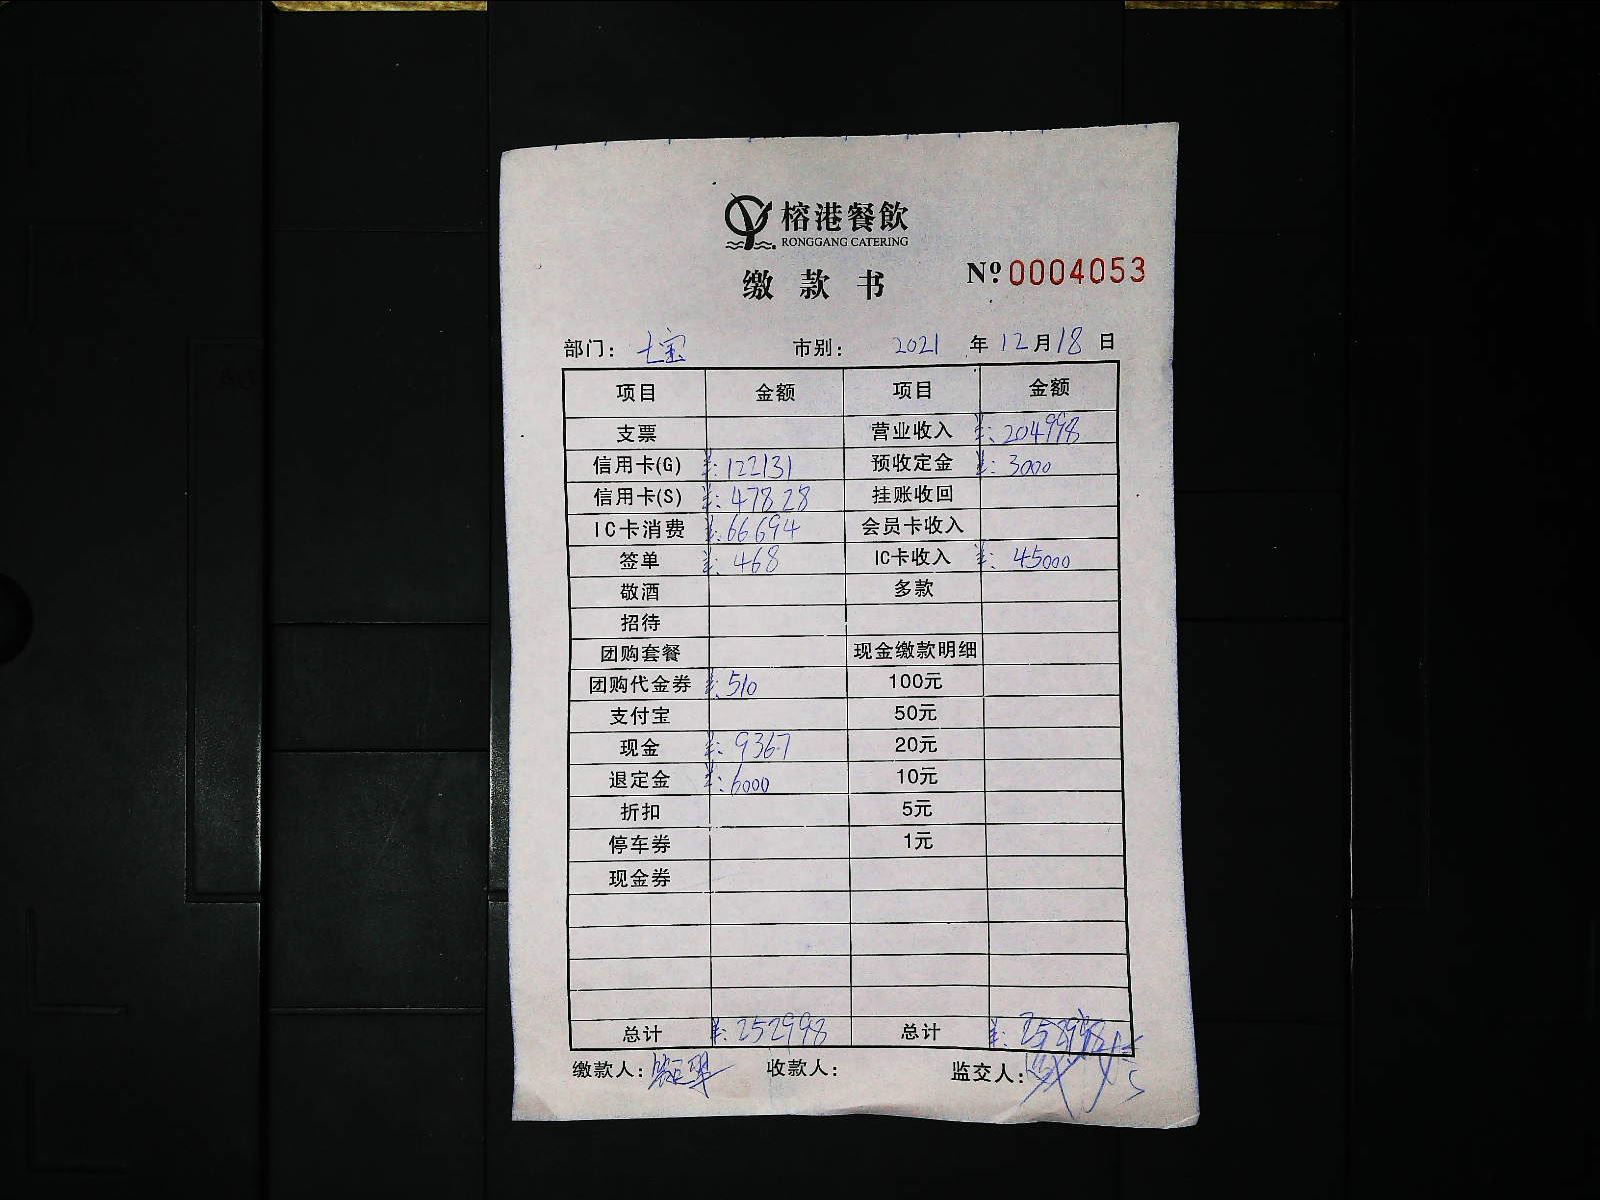 榕港餐飲
RONGGANG CATERING
缴款书 Nº 0004053
部门: 七宝 市别: 2021 年 12 月 18 日
项目 金额 项目 金额
支票 营业收入 ¥: 204998
信用卡(G) ¥: 122131 预收定金 ¥: 3000
信用卡(S) ¥: 47828 挂账收回
IC卡消费 ¥: 66694 会员卡收入
签单 ¥: 468 IC卡收入 ¥: 45000
敬酒 多款
招待
团购套餐 现金缴款明细
团购代金券 ¥: 510 100元
支付宝 50元
现金 ¥: 9367 20元
退定金 ¥: 6000 10元
折扣 5元
停车券 1元
现金券
总计 ¥: 252998 总计 ¥: 252998
缴款人: 收款人: 监交人: